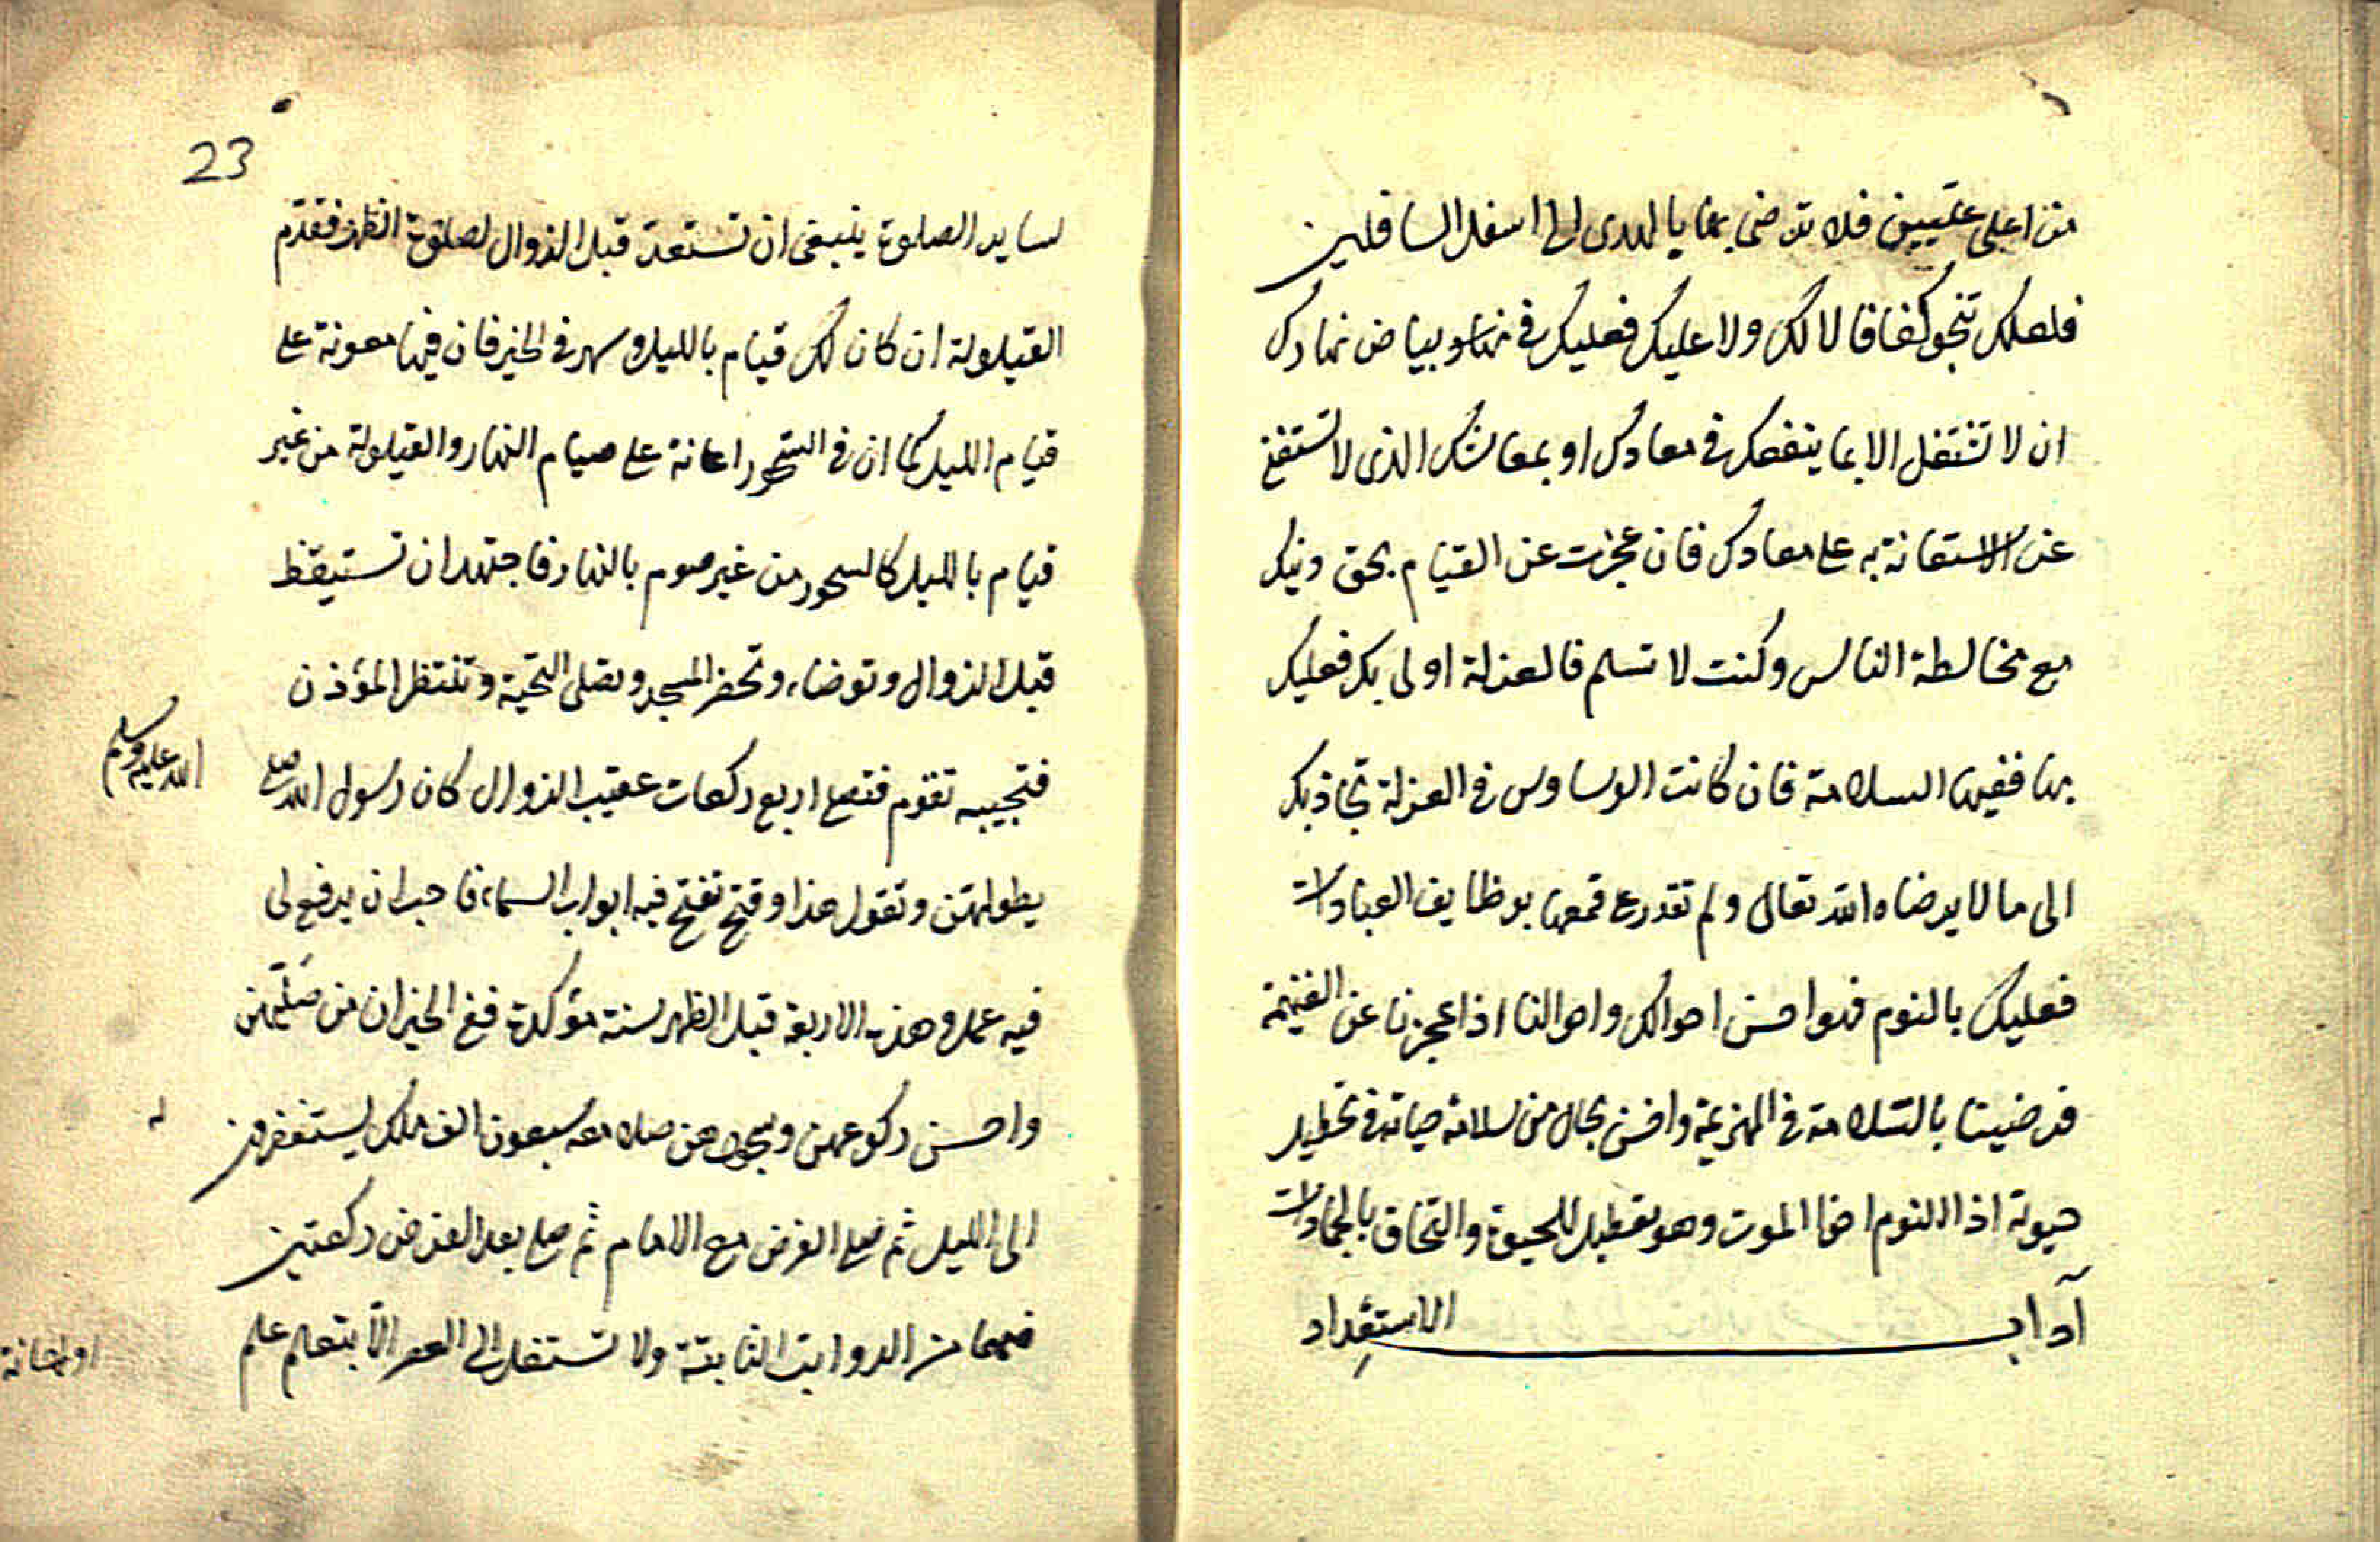 من اعلى عليين فلا ترضى بها يا لهدى الى اسفل السافلين
فلعلك تنجو كفافا لا لك ولا عليك فعليك في بياض نهارك
ان لا تشتغل الا بما ينفعك في معادك او بمعاشك الذى لا تستغنى
عن الاستعانة به على معادك فان عجزت عن القيام بحق دينك
مع مخالطة الناس وكنت لا تسلم فالعزلة اولى بك فعليك
بها ففيها السلامة فان كانت الوساوس في العزلة تجاذبك
الى ما لا يرضاه الله تعالى ولم تقدر ع قمعها بوظايف العبادات
فعليك بالنوم فهو احسن احوالك واحوالنا اذا عجزنا عن الغنيمة
فرضينا بالسلامة في الهزيمة واخس بحال من سلامة حياته في تعطيل
حيوته اذ النوم اخا الموت وهو تعطيل للحيوة والتحاق بالجمادات
آداب الاستعداد
23
لساير الصلوة ينبغى ان تستعد قبل الزوال لصلوة الظهر فقدم
القيلولة ان كان لك قيام بالليل و سهر في الخير فان فيها معونة على
قيام الليل كما ان في السحور اعانة على صيام النهار والقيلولة من غير
قيام بالليل كالسحور من غير صوم بالنهار فاجتهد ان تستيقظ
قبل الزوال وتوضاء وتحضر المسجد وتصلى التحية وتنتظر المؤذن
فتجيبه تقوم فتصلى اربع ركعات عقيب الزوال كان رسول الله صلى
الله عليه وسلم
يطولهن وتقول هذا وقت تفتح فيه ابواب السماء فاحب ان يرفع لى
فيه عمل وهذه الاربعة قبل الظهر سنة مؤكدة ففي الخبر ان من صليهن
واحسن ركوعهن وسجودهن صلا معه سبعون الف ملك يستغفرون
له
الى الليل ثم صل الفرض مع الامام ثم صل بعد الفرض ركعتين
فهما من الرواتب الثابتة ولا تشتغل الى العصر الا بتعلم علم
او اعانة